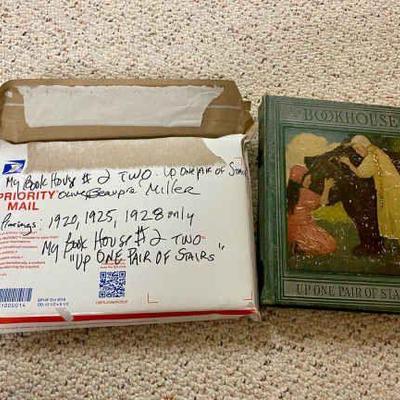 My Book House #2 TWO - UP ONE PAIR OF Stairs
PRIORITY
MAIL
Olive Beaupre Miller
Printings: 1920, 1925, 1928 only
My Book House #2 TWO
"UP ONE PAIR OF STAIRS"
BOOKHOUSE
UP ONE PAIR OF STAI